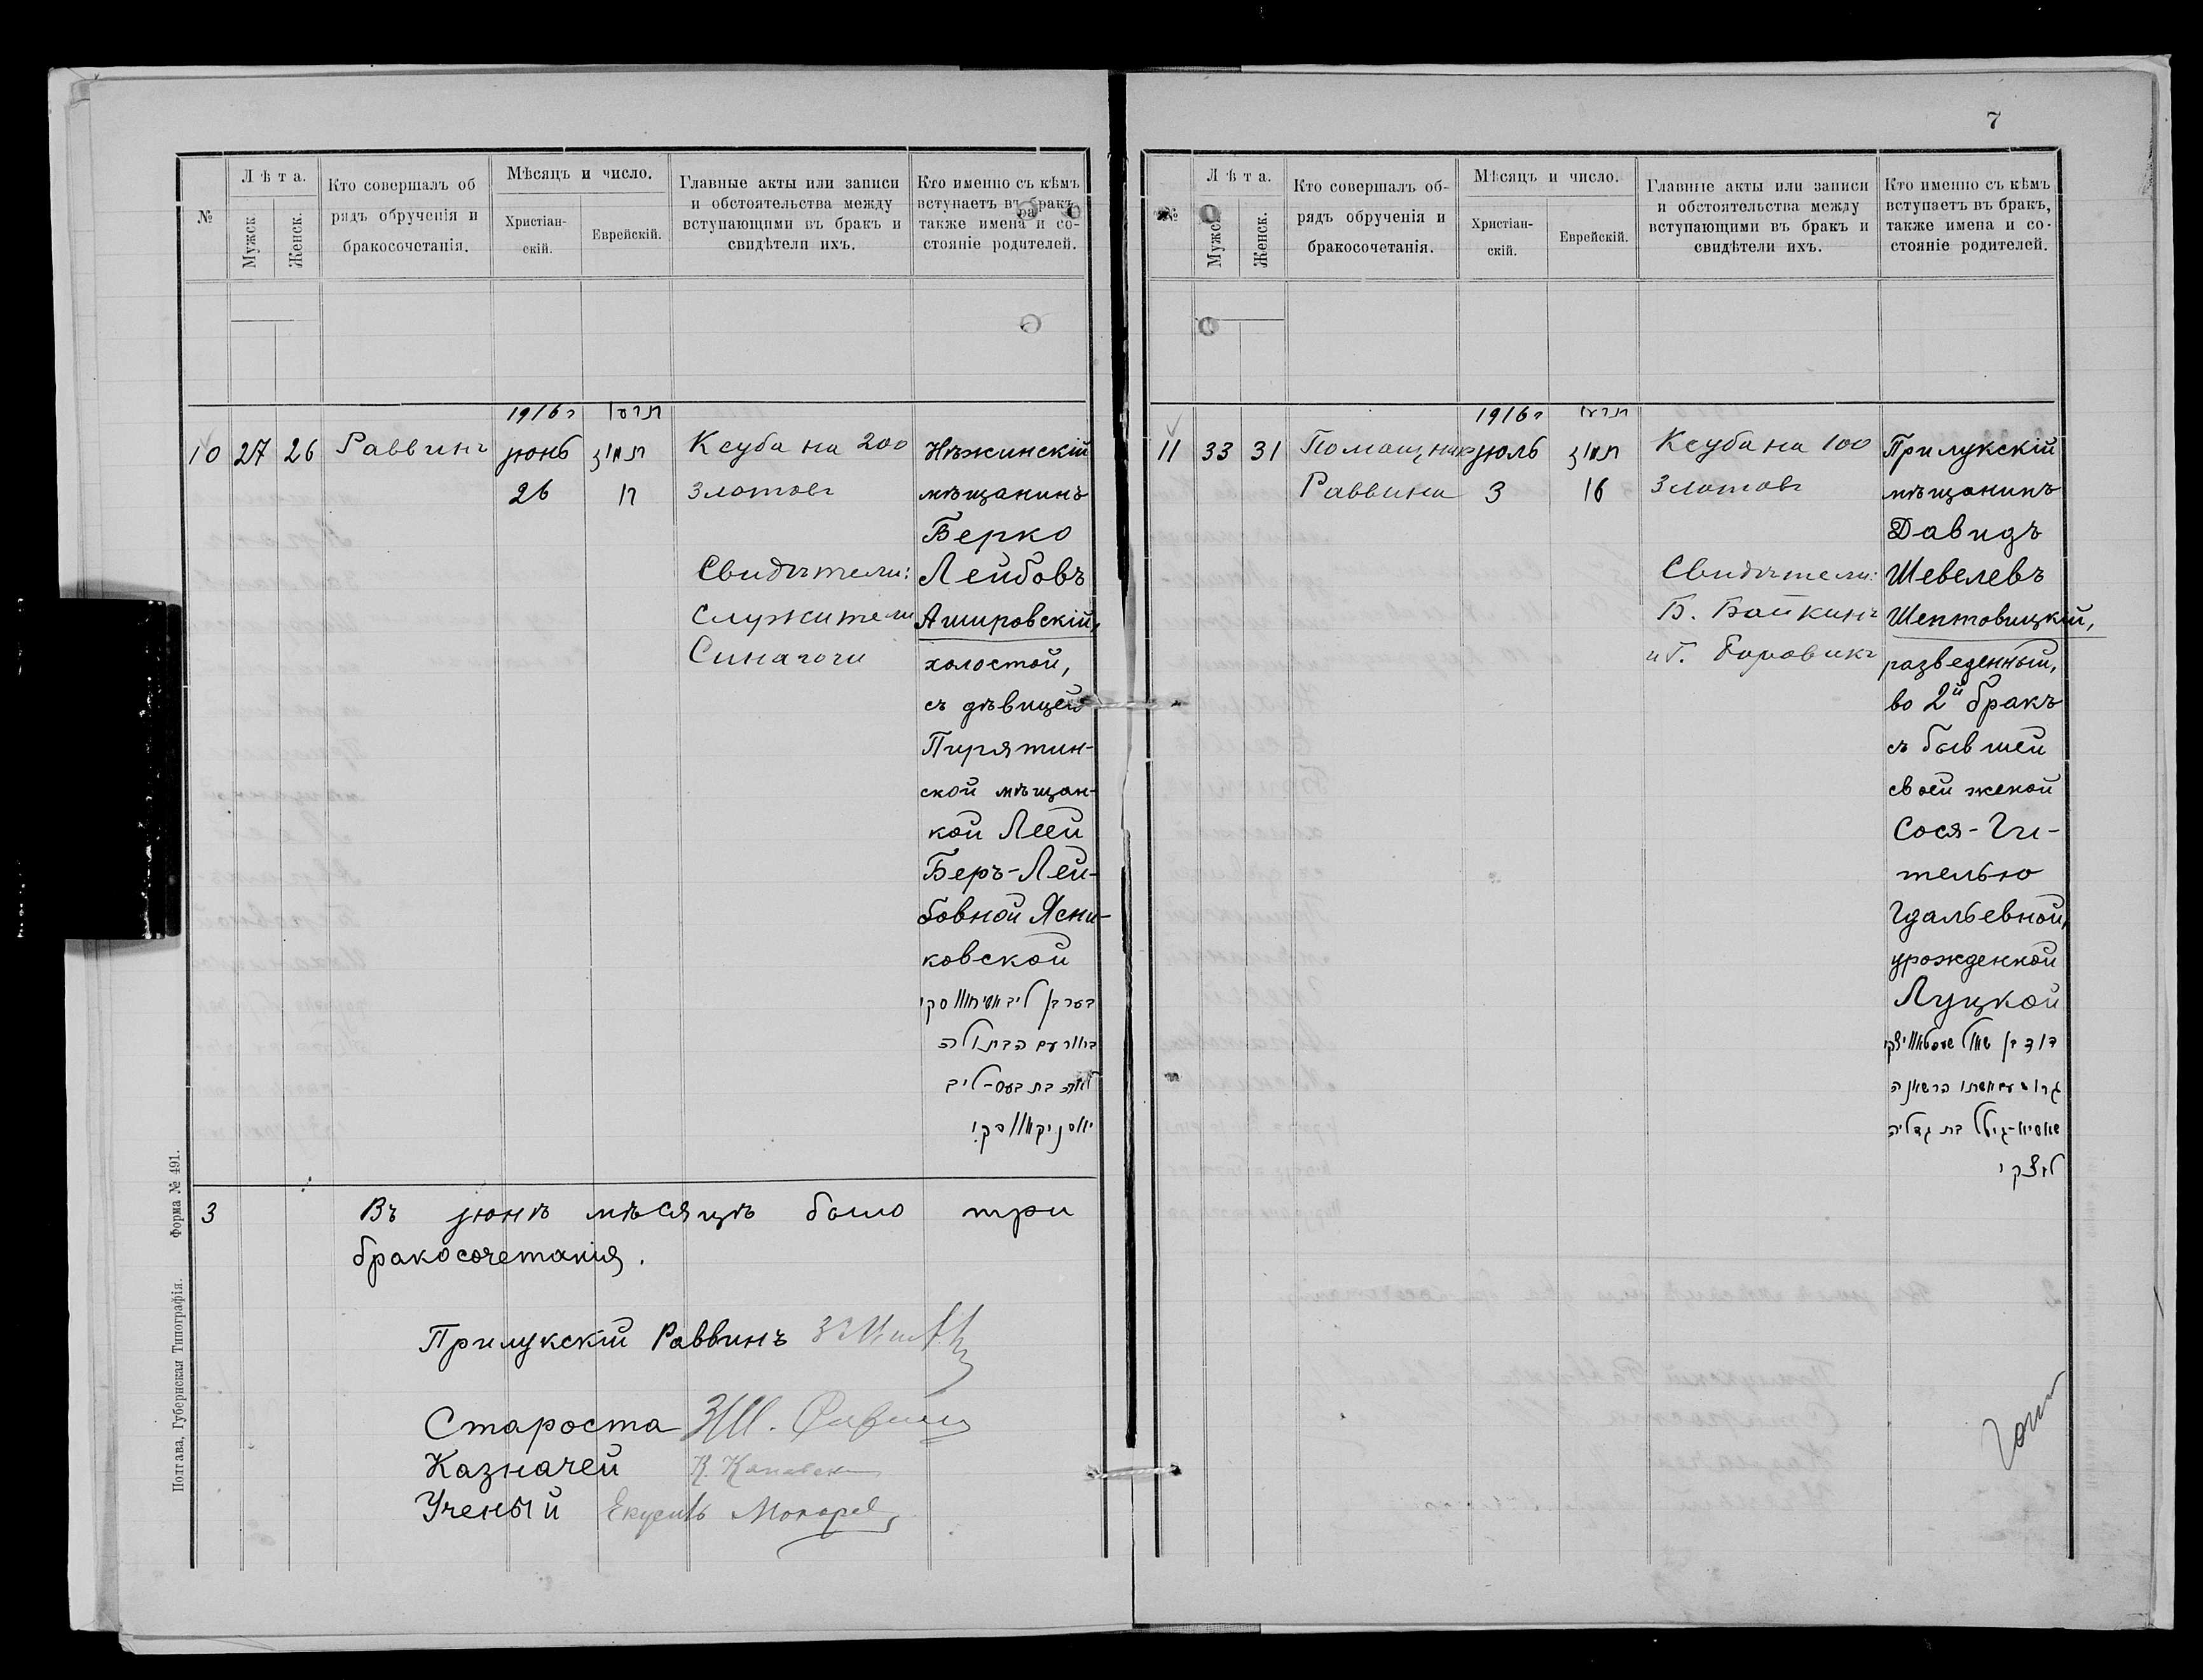 7
№
Лѣта.
Мужск.
Женск.
Кто совершалъ об
рядъ обрученія и
бракосочетанія.
Мѣсяцъ и число.
Христіан-
скій.
Еврейскій.
Главные акты или записи
и обстоятельства между
вступающими въ бракъ и
свидѣтели ихъ.
Кто именно съ кѣмъ
вступаетъ въ бракъ,
также имена и со-
стояніе родителей.
1916 г
10
27
26
Раввинъ
іюнь
26
תמוז
Ксуба на 200
злотовъ
Свидѣтели:
Служители
Синагоги
Нѣжинскій
мѣщанинъ
Берко
Лейбовъ
Ашировскій,
холостой,
съ дѣвицей
Пирятин-
ской мѣщан-
кой Леей
Беръ-Лей-
бовной Ясни-
ковской
הבתולה
לאה בת בער-ליב
יאסניקאווסקי
3
Въ іюнѣ мѣсяцѣ было три
бракосочетанія.
Прилукскій Раввинъ
Староста
Казначей
Ученый
Форма № 491.
Полтава, Губернская Типографія.
№
Лѣта.
Мужск.
Женск.
Кто совершалъ об-
рядъ обрученія и
бракосочетанія.
Мѣсяцъ и число.
Христіан-
скій.
Еврейскій.
Главные акты или записи
и обстоятельства между
вступающими въ бракъ и
свидѣтели ихъ.
Кто именно съ кѣмъ
вступаетъ въ бракъ,
также имена и со-
стояніе родителей.
1916 г
11
33
31
Помощникъ
Раввина
іюль
3
תמוז
16
Ксуба на 100
злотовъ
Свидѣтели:
Б. Байкинъ
и Г. Боровикъ
Прилукскій
мѣщанинъ
Давидъ
Шевелевъ
Шептовицкій,
разведенный,
во 2й бракъ
съ бывшей
своей женой
Сося-Ги-
телью
Гдальевной,
урожденной
Луцкой
גרוש עם אשתו הראשונה
בת גדליה
לוצקי